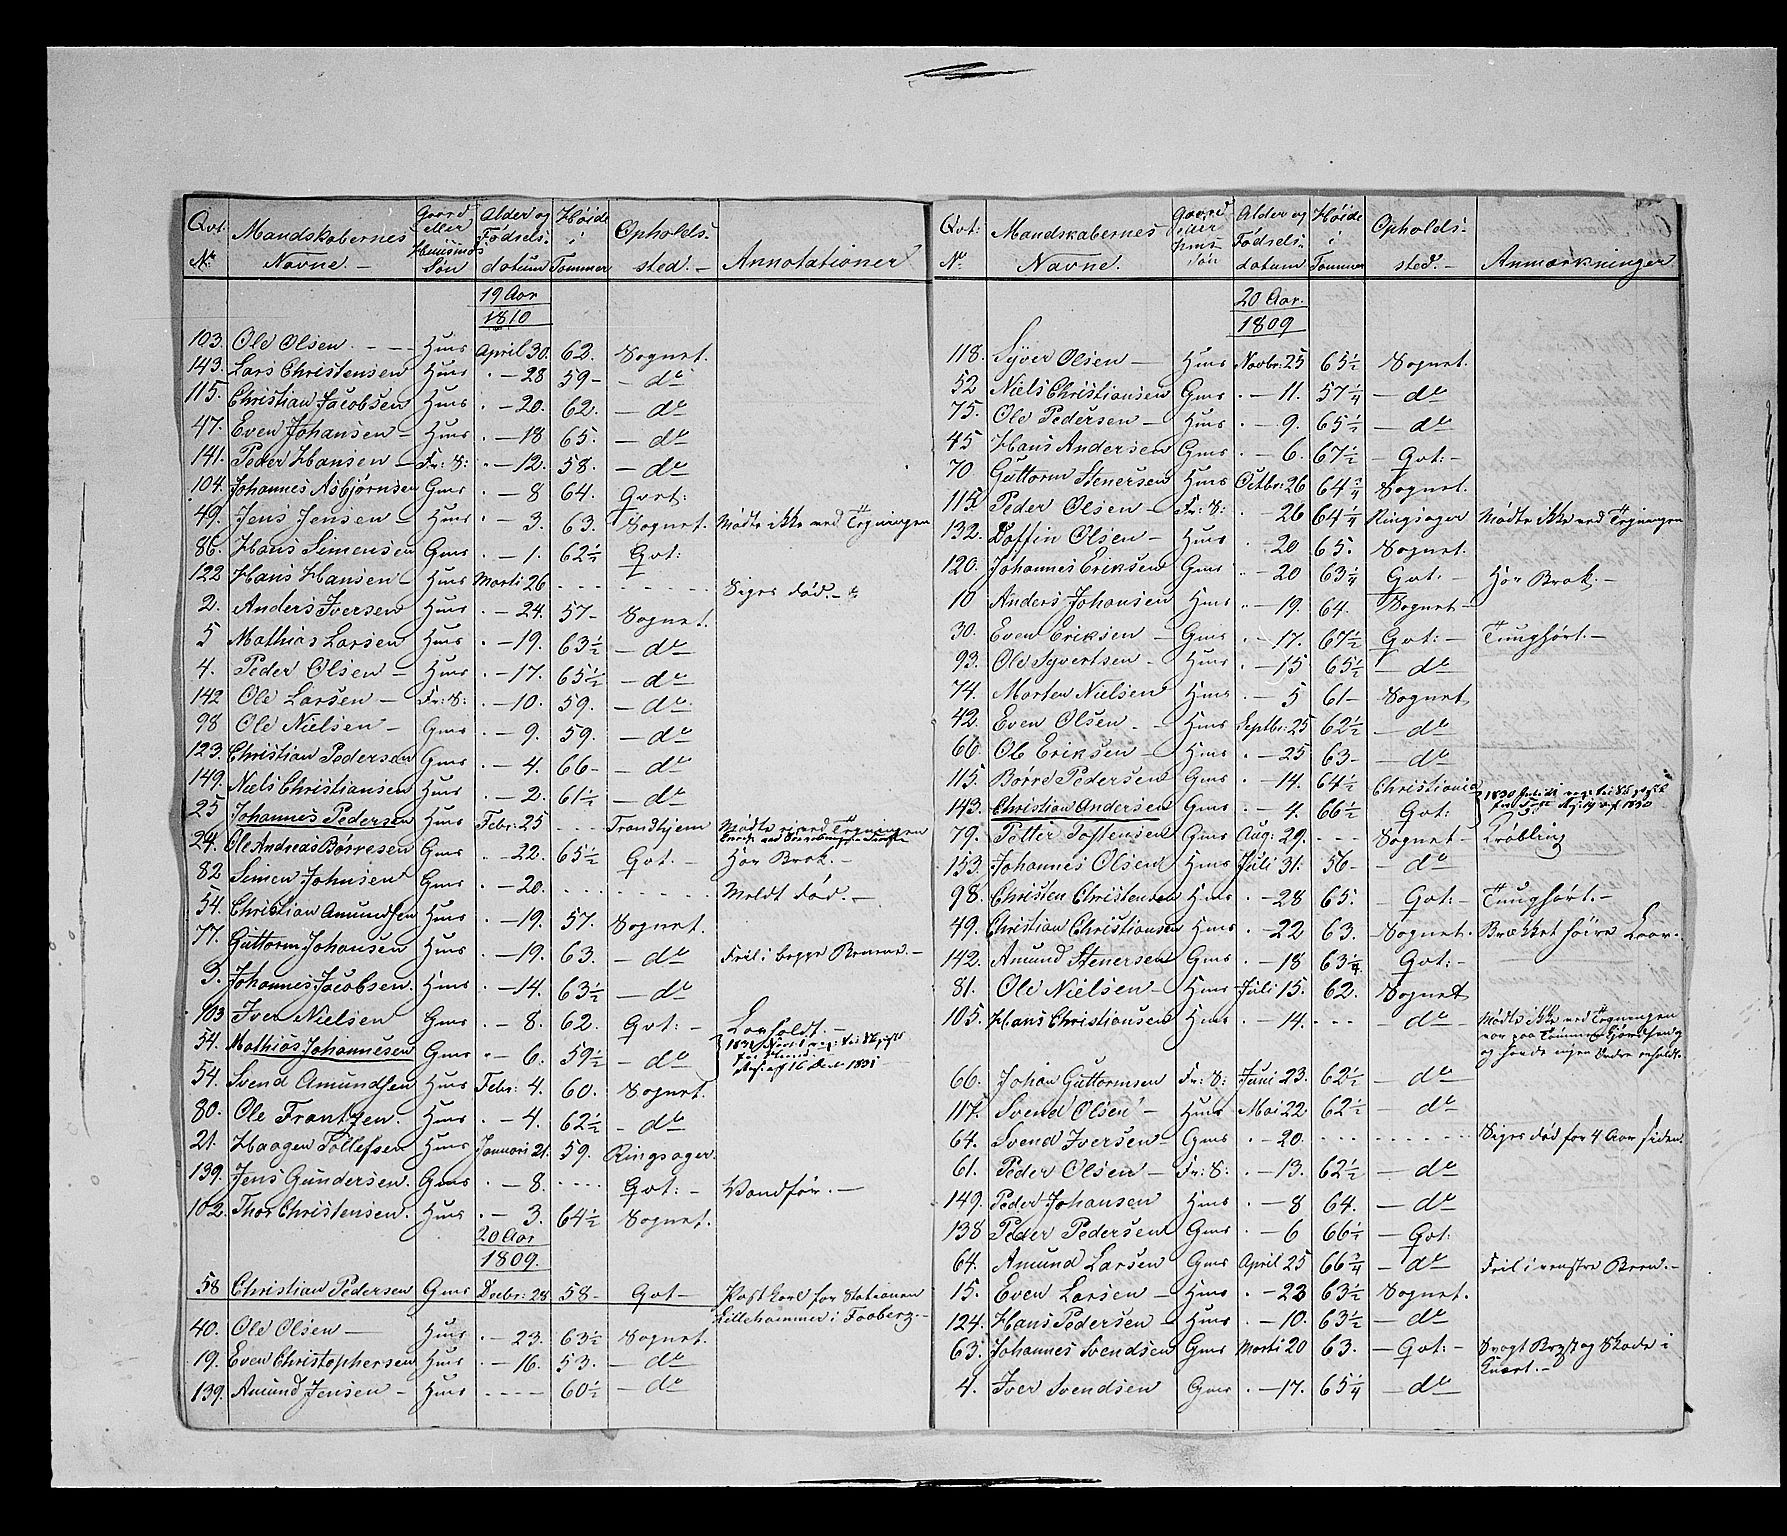 Qvt: Mandskabernes Gaard Alder og Høide Opholds-
eller Fødsels- i
No. Navne. Huusmds Søn datum Tommer sted. Annotationer
19 Aar
1810
103. Ole Olsen. Hms April 30. 62. Sognet.
143. Lars Christensen Hms - 28 59 - do
115. Christian Jacobsen Hms - 20. 62. - do
47. Even Johansen - Hms - 18 65. - do
141. Peder Hansen - Fr: S: - 12. 58. - do
104. Johannes Asbjørnsen Gms - 8 64. Qvrt:
49. Jens Jensen - Hms - 3. 63. Sognet. Mødte ikke ved Tegningen
86. Hans Simensen Gms - 1. 62½ Qvt:
122 Hans Hansen - Hms Marti 26 - - - - - - Siges død. -
2. Anders Iversen Hms - 24. 57 - Sognet.
5 Mathias Larsen Hms - 19. 63½ - do
4. Peder Olsen - Hms - 17. 65½ - do
142 Ole Larsen - Fr: S: - 10. 59. - do
98 Ole Nielsen - Gms - 9. 59. - do
123. Christian Pedersen Gms - 4. 66 - - do
149. Niels Christiansen Hms - 2. 61½ - do
25 Johannes Pedersen Hms Febr: 25 - - - Trondhjem Mødte ei ved Tegningen
24. Ole Andreas Børresen Gms - 22. 65½ Qvt: - Har Brok. -
82 Simen Johnsen Gms - 20. - - - - - - Meldt død. -
54. Christian Amundsen Hms - 19. 57. Sognet.
77. Guttorm Johansen Hms - 19. 63. - do Feil i begge Benene -
3. Johannes Jacobsen Hms - 14. 63½ - do
103 Iver Nielsen Gms - 8. 62. Qvt: -
54. Mathias Johannesen Gms - 6. 59½ - do
54. Svend Amundsen Hms Febr: 4. 60. Sognet.
80. Ole Frantzen. Hms - 4. 62½ - do
21. Haagen Tollefsen Hms Januari 21. 59. Ringsager
139. Jens Gundersen. Gms - 8. - - - Qvt: - Vandfør. -
102. Thor Christensen. Hms - 3. 64½ Sognet.
20 Aar
1809.
58 Christian Pedersen Gms Decbr: 28 58 - Qvt - Postkarl for Stationen
Lillehammer i Faaberg. -
40. Ole Olsen - Hms - 23. 63½ Sognet.
19. Even Christophersen Hms - 16. 53. - do
139. Amund Jensen - Hms - - - - 60½ - do
Qvt: Mandskabernes Gaard Alder og Høide Opholds-
eller Fødsels- i
No. Navne. Hms Søn datum Tommer sted. - Anmærkninger.
20 Aar.
1809
118. Syver Olsen - Hms Novbr: 25 65½ Sognet.
52 Niels Christiansen Gms - 11. 57¼ - do
75. Ole Pedersen - Hms - 9. 65½ - do
45 Hans Andersen Gms - 6. 67½ - Qvt: -
70 Guttorm Stenersen Hms Octbr: 26 64¾ Sognet.
115. Peder Olsen - Fr: S: - 26 64¼ Ringsager Mødte ikke ved Tegningen
132. Daffin Olsen - Hms - 20 65. Sognet.
120. Johannes Eriksen Gms - 20 63¼ Qvt. - Har Brok. -
10 Anders Johansen Hms - 19. 64. Sognet -
30. Even Eriksen - Gms - 17. 67½ Qvt: - Tunghørt. -
93. Ole Syvertsen - Hms - 15 65½ - do
74. Morten Nielsen Hms - 5 61 - Sognet
42. Even Olsen - Hms Septbr: 25 62½ - do
66. Ole Eriksen - Hms - 25 63 - - do
115. Børre Pedersen Gms - 14. 64½ Christiania
143. Christian Andersen Gms - 4. 66½ Qvt:
79. Petter Tostensen Gms Aug: 29. - - - Sognet - Krøbling
153. Johannes Olsen Hms Juli 31. 56 - - do
98. Christen Christensen Hms - 28 65. - Qvt: - Tunghørt. -
49. Christian Christiansen Hms - 22 63. Sognet. Brækket høire Laar.
142. Amund Stenersen Gms - 18 63¼ Qvt: -
81. Ole Nielsen - Hms Juli 15. 62. Sognet
105. Hans Christiansen Hms - 14. - - - do Mødte ikke ved Tegningen
66. Johan Guttormsen Fr: S: Juni 23. 62½ - do
117. Svend Olsen - Hms Mai 22 62½ - do
64. Svend Iversen - Gms - 20. - - - - - - Siges død for 4 Aar siden.
61. Peder Olsen - Fr: S: - 13. 62½ - do
149. Peder Johansen Hms - 8 64. - do
138 Peder Pedersen Gms - 6 66½ - Qvt:
64. Amund Larsen Gms April 25 66¾ - do Feil i venstre Been. -
15. Even Larsen - Hms - 23 63½ Sognet.
124. Hans Pedersen - Hms - 10. 63½ - do
63. Johannes Svendsen Gms Marti 20 63. - Qvt: - Svagt Bryst og Skade i
Knæet. -
4. Iver Svendsen Gms - 17. 65¼ - do